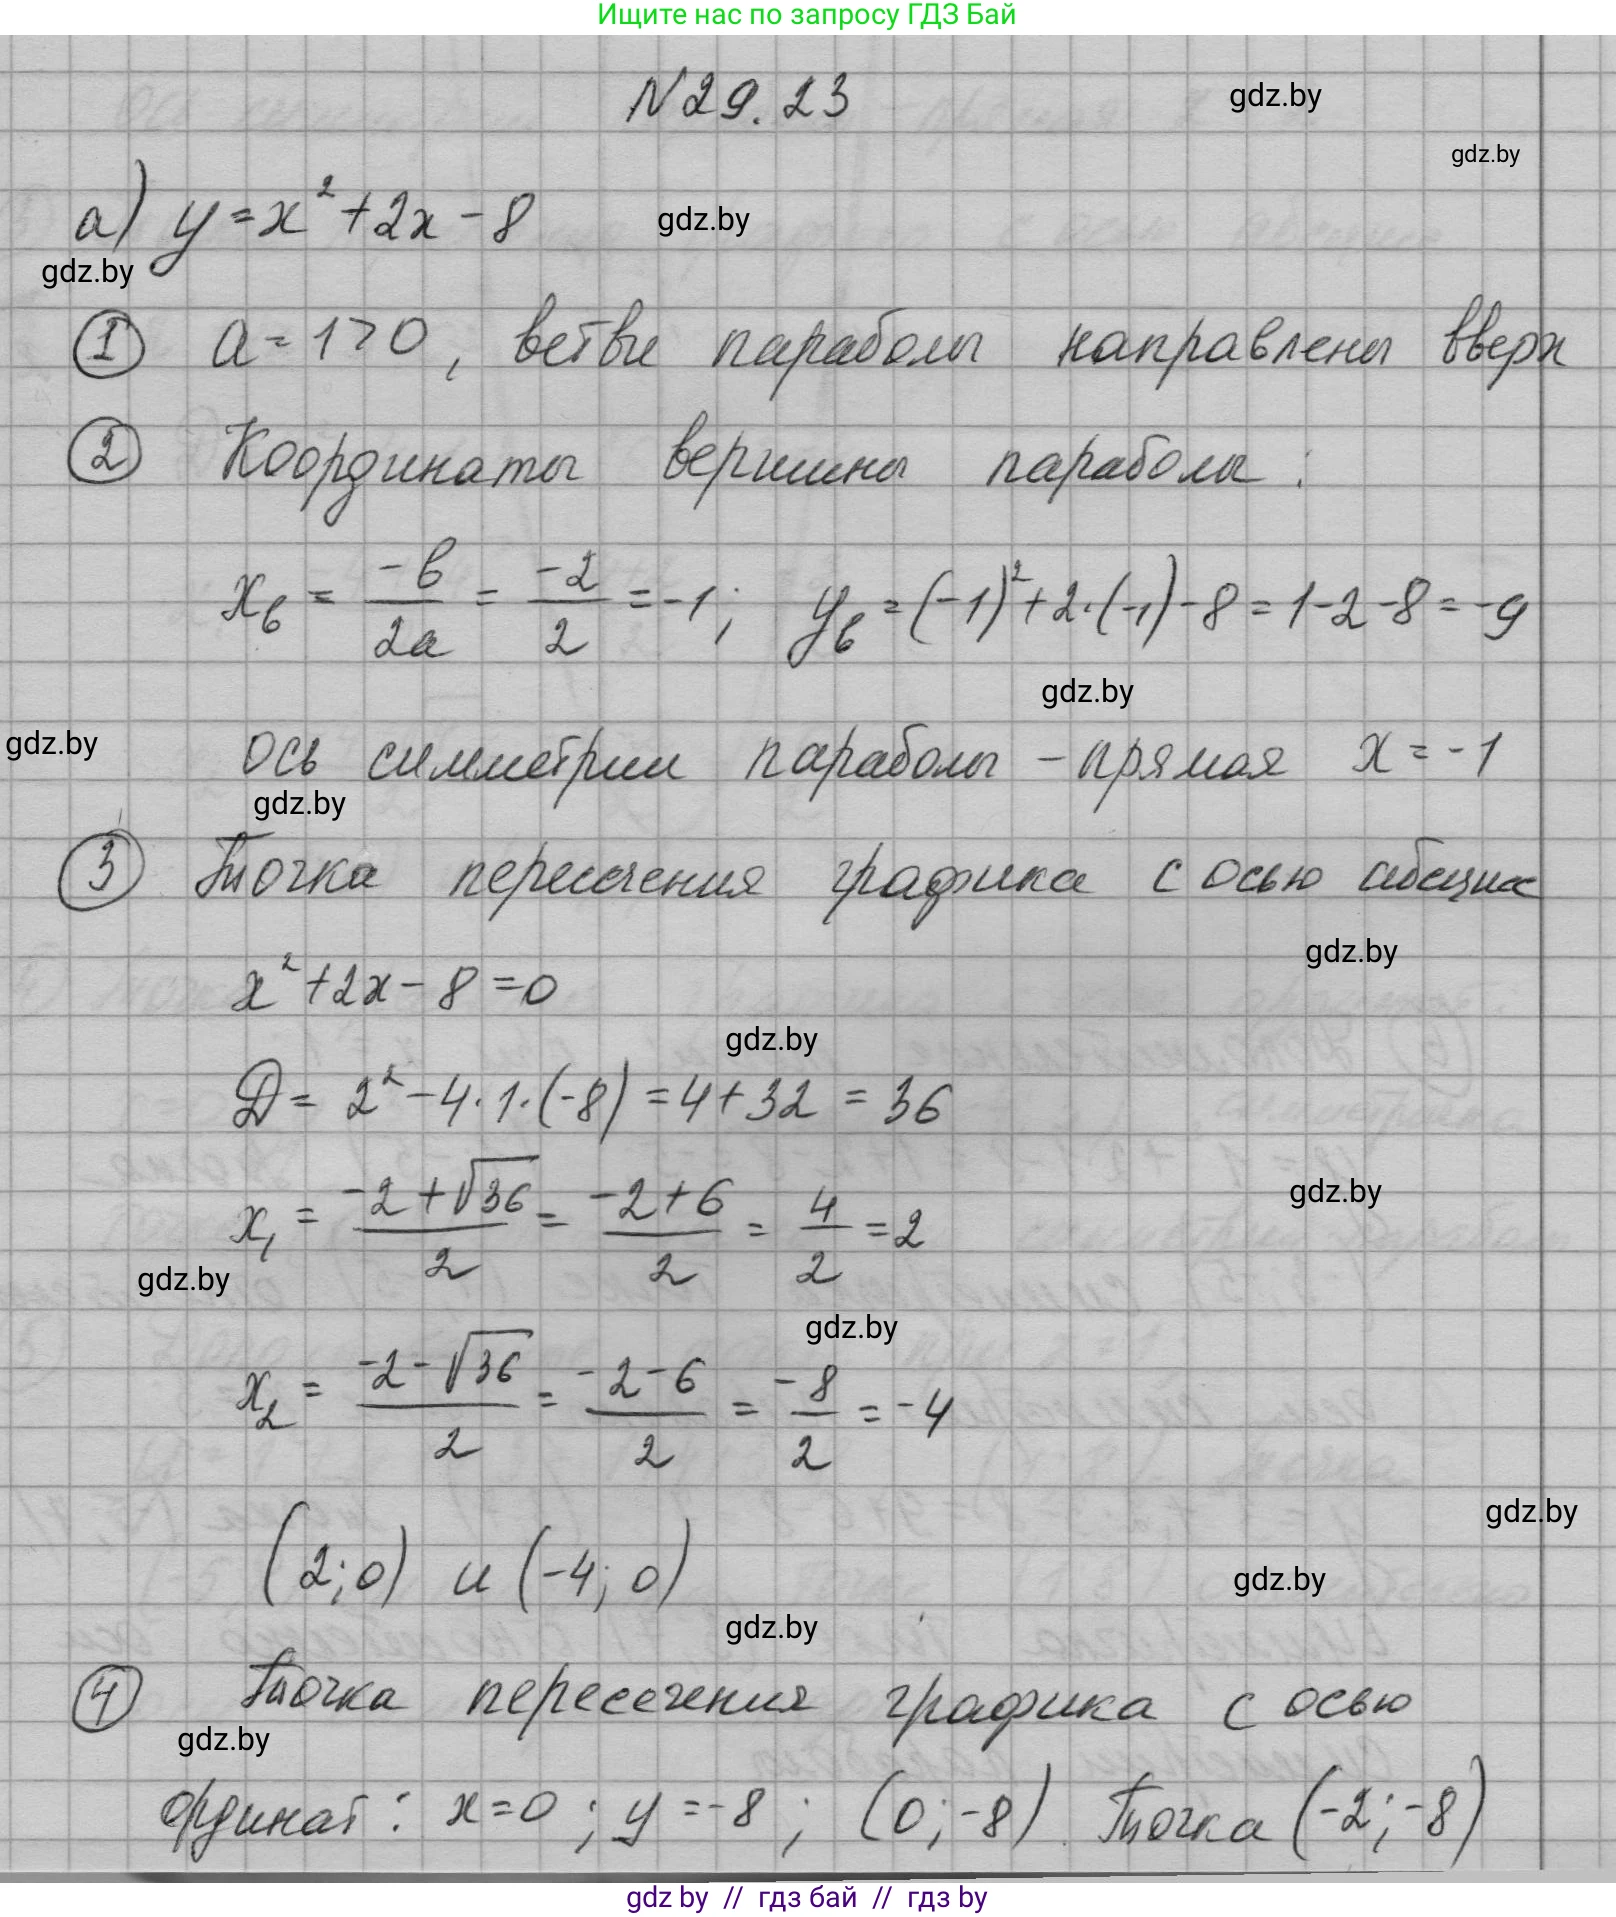 Ищите нас по запросу ГДЗ Бай
N29.23
gdz.by
gdz.by
а) y=x²+2x-8
gdz.by
gdz.by
1 a=1>0, ветви параболы направлены вверх
2 Координаты вершины параболы:
xв = -b/2a = -2/2 = -1; yв = (-1)²+2·(-1)-8=1-2-8=-9
gdz.by
gdz.by
ось симметрии параболы - прямая x=-1
gdz.by
3 Точка пересечения графика с осью абсцисс
gdz.by
x²+2x-8=0
gdz.by
D= 2²-4·1·(-8)=4+32=36
gdz.by
x₁ = -2+√36/2 = -2+6/2 = 4/2 = 2
gdz.by
gdz.by
x₂ = -2-√36/2 = -2-6/2 = -8/2 = -4
gdz.by
(2;0) и (-4;0)
gdz.by
gdz.by
4 Точка пересечения графика с осью
gdz.by
ординат: x=0; y=-8; (0;-8). Точка (-2;-8)
gdz by // гдз бай // гдз by